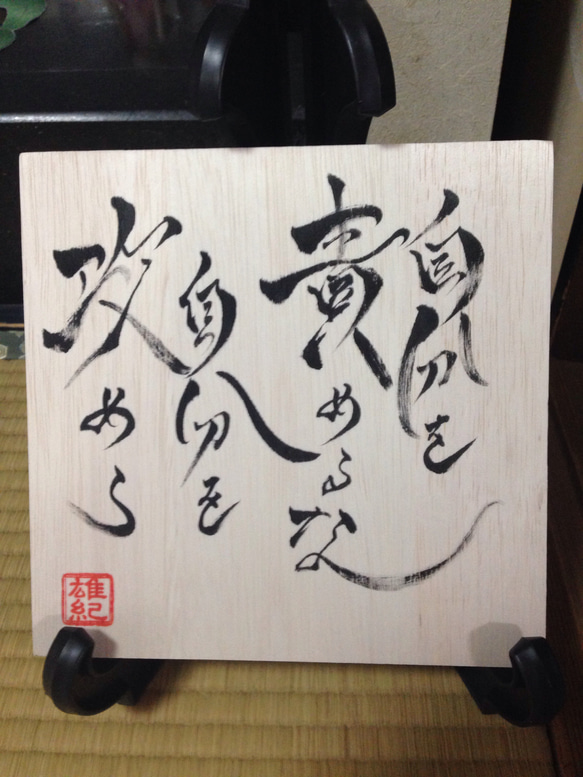 自分を
責めるな
自分を
攻めろ
雄紀